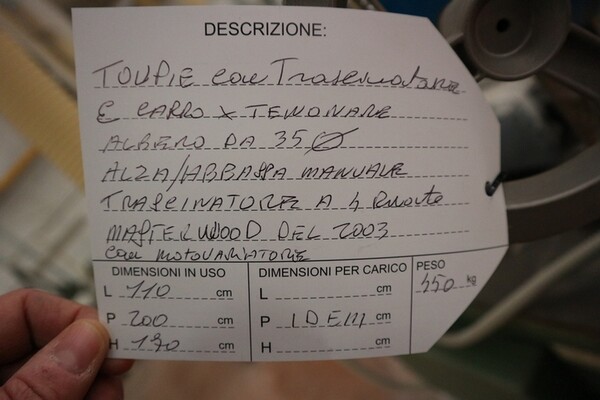 DESCRIZIONE:
TOUPIE con Trascinatore
E CARRO X TENONARE
ALBERO DA 35 Ø
ALZA/ABBASSA MANUALE
TRASCINATORE A 4 Ruote
MASTERWOOD DEL 2003
con MOTOVARIATORE
DIMENSIONI IN USO
L 110 cm
P 200 cm
H 190 cm
DIMENSIONI PER CARICO
L cm
P IDEM cm
H cm
PESO
450 kg